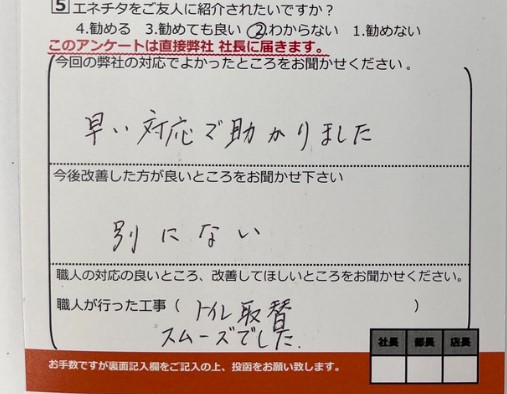 5 エネチタをご友人に紹介されたいですか？
4.勧める 3.勧めても良い 2.わからない 1.勧めない
このアンケートは直接弊社 社長に届きます。
今回の弊社の対応でよかったところをお聞かせください。
早い対応で助かりました
今後改善した方が良いところをお聞かせ下さい
別にない
職人の対応の良いところ、改善してほしいところをお聞かせください。
職人が行った工事（ トイレ取替 ）
スムーズでした.
社長 部長 店長
お手数ですが裏面記入欄をご記入の上、投函をお願い致します。